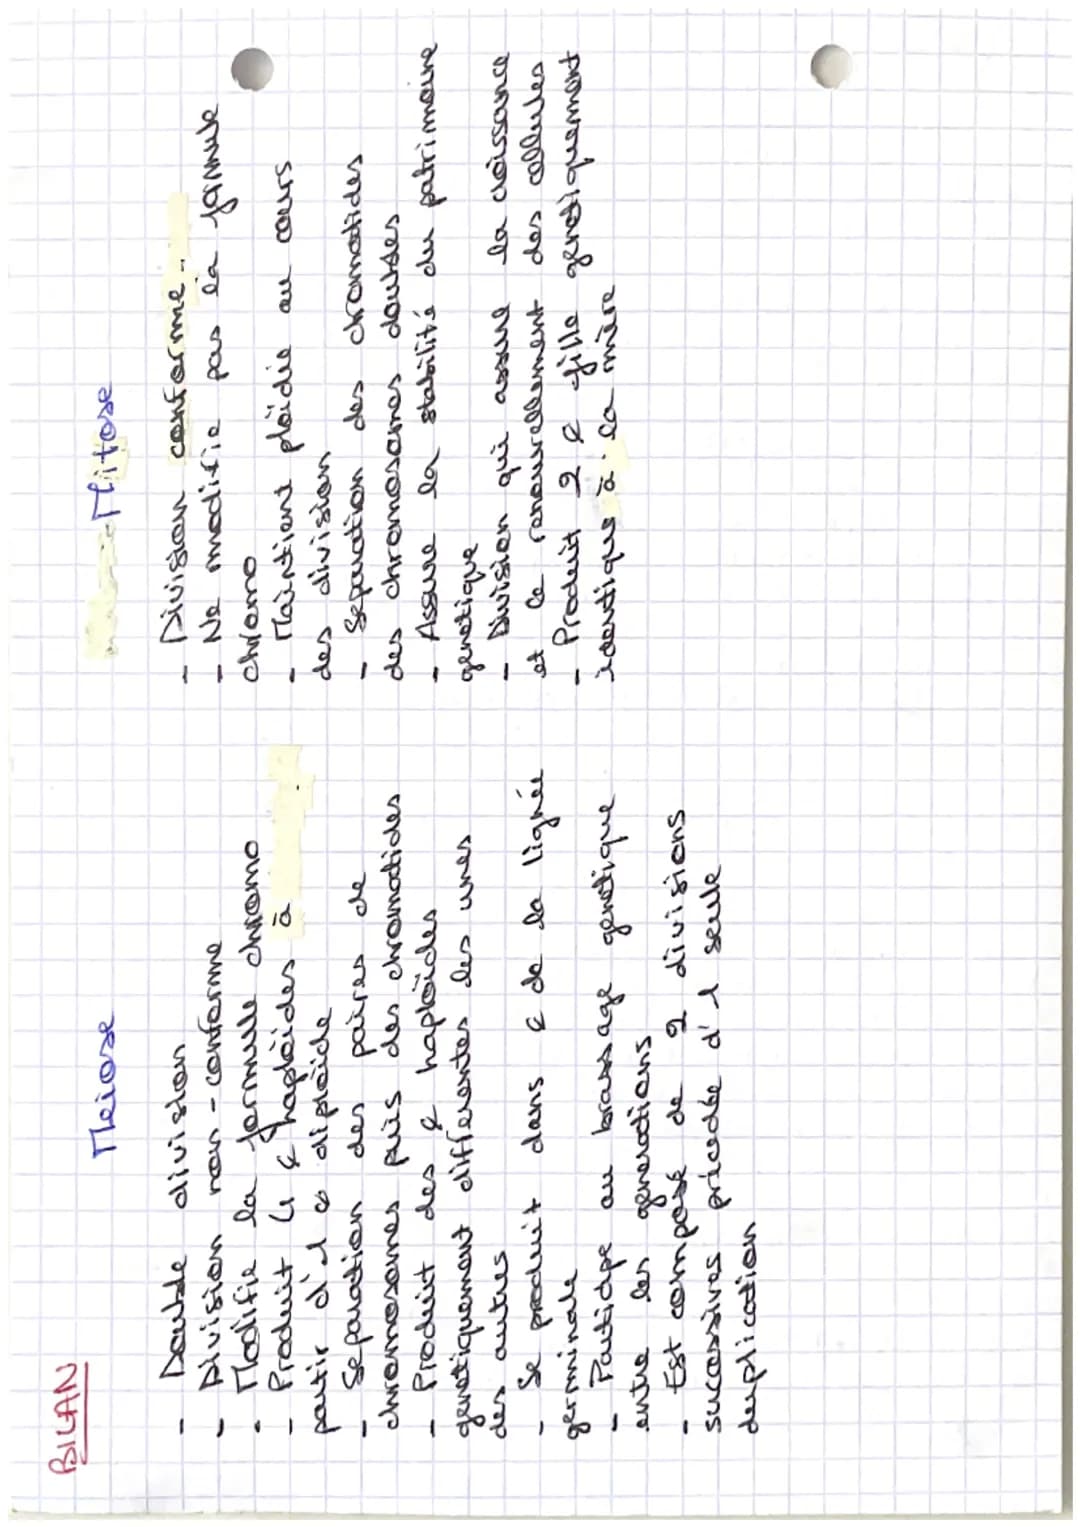 BILAN
Meiose
- Double division
- Division non-conforme
- Modifie la formule chromo
- Produit 4 ¢ haploïdes à
partir d'1 ¢ diploïde
- Separation des paires de
chromosomes puis des chromatides
- Produit des ¢ haploïdes
génétiquement differentes les unes
des autres
- Se produit dans ¢ de la lignée
germinale
- Participe au brassage genetique
entre les generations
- Est composé de 2 divisions
successives précédée d'1 seule
duplication
Mitose
- Division conforme.
- Ne modifie pas la formule
chromo
- Maintient ploïdie au cours
des division
- Separation des chromatides
des chromosomes doubles
- Assure la stabilité du patrimoine
génétique
- Division qui assure la croissance
et le renouvellement des cellules
- Produit 2 ¢ fille genetiquement
identique à la mère